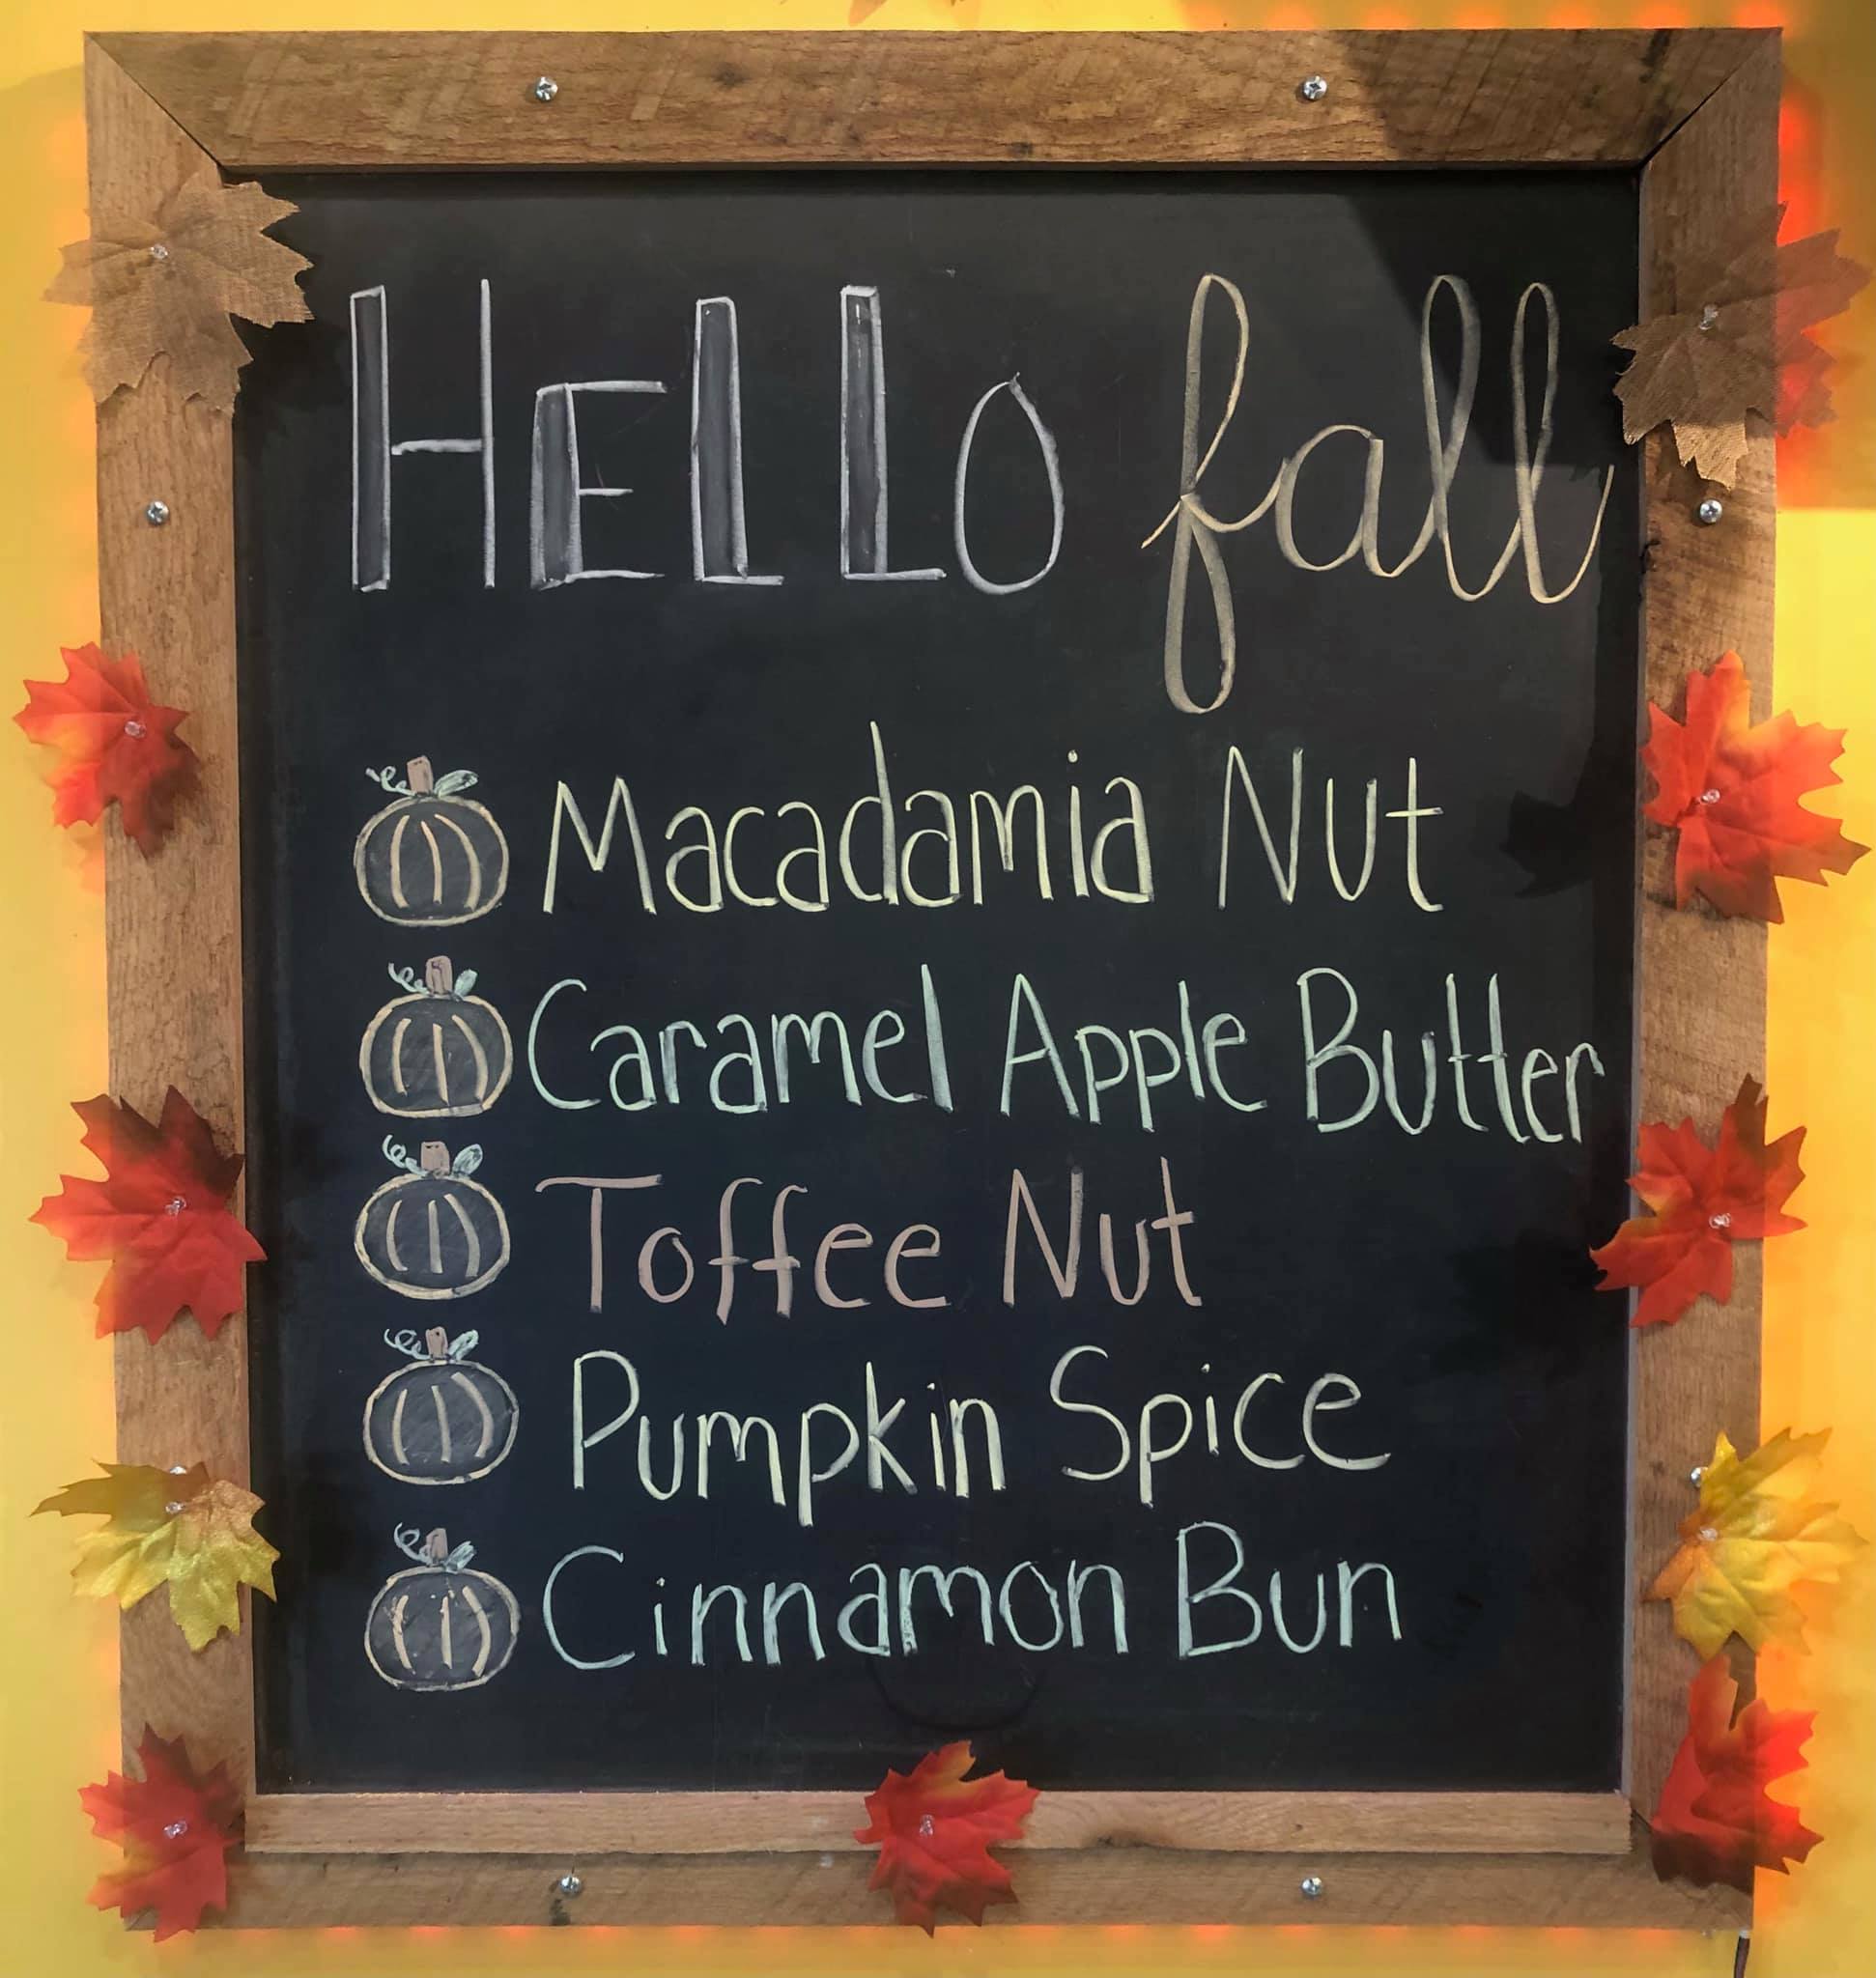 HELLO fall
Macadamia Nut
Caramel Apple Butter
Toffee Nut
Pumpkin Spice
Cinnamon Bun